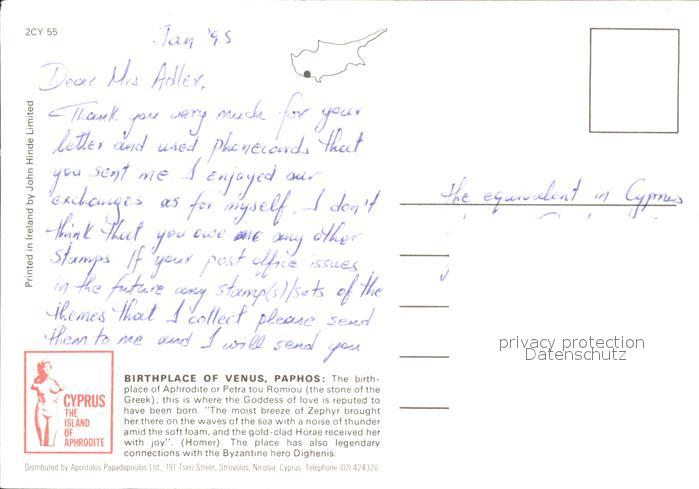 2CY 55
Jan '95
Dear Mrs Adler,
Thank you very much for your
letter and used phonecards that
you sent me I enjoyed our
exchanges as for myself. I don't
think that you owe me any other
stamps. If your post office issues
in the future any stamp(s)/sets of the
themes that I collect please send
them to me and I will send you
the equivalent in Cyprus
Printed in Ireland by John Hinde Limited
privacy protection
Datenschutz
CYPRUS
THE
ISLAND
OF
APHRODITE
BIRTHPLACE OF VENUS, PAPHOS: The birth-
place of Aphrodite or Petra tou Romiou (the stone of the
Greek); this is where the Goddess of love is reputed to
have been born. "The moist breeze of Zephyr brought
her there on the waves of the sea with a noise of thunder
amid the soft foam, and the gold-clad Horae received her
with joy". (Homer). The place has also legendary
connections with the Byzantine hero Dighenis.
Distributed by Apostolos Papadopoulos Ltd., 191 Tseri Street, Strovolos, Nicosia, Cyprus. Telephone (02) 424320.